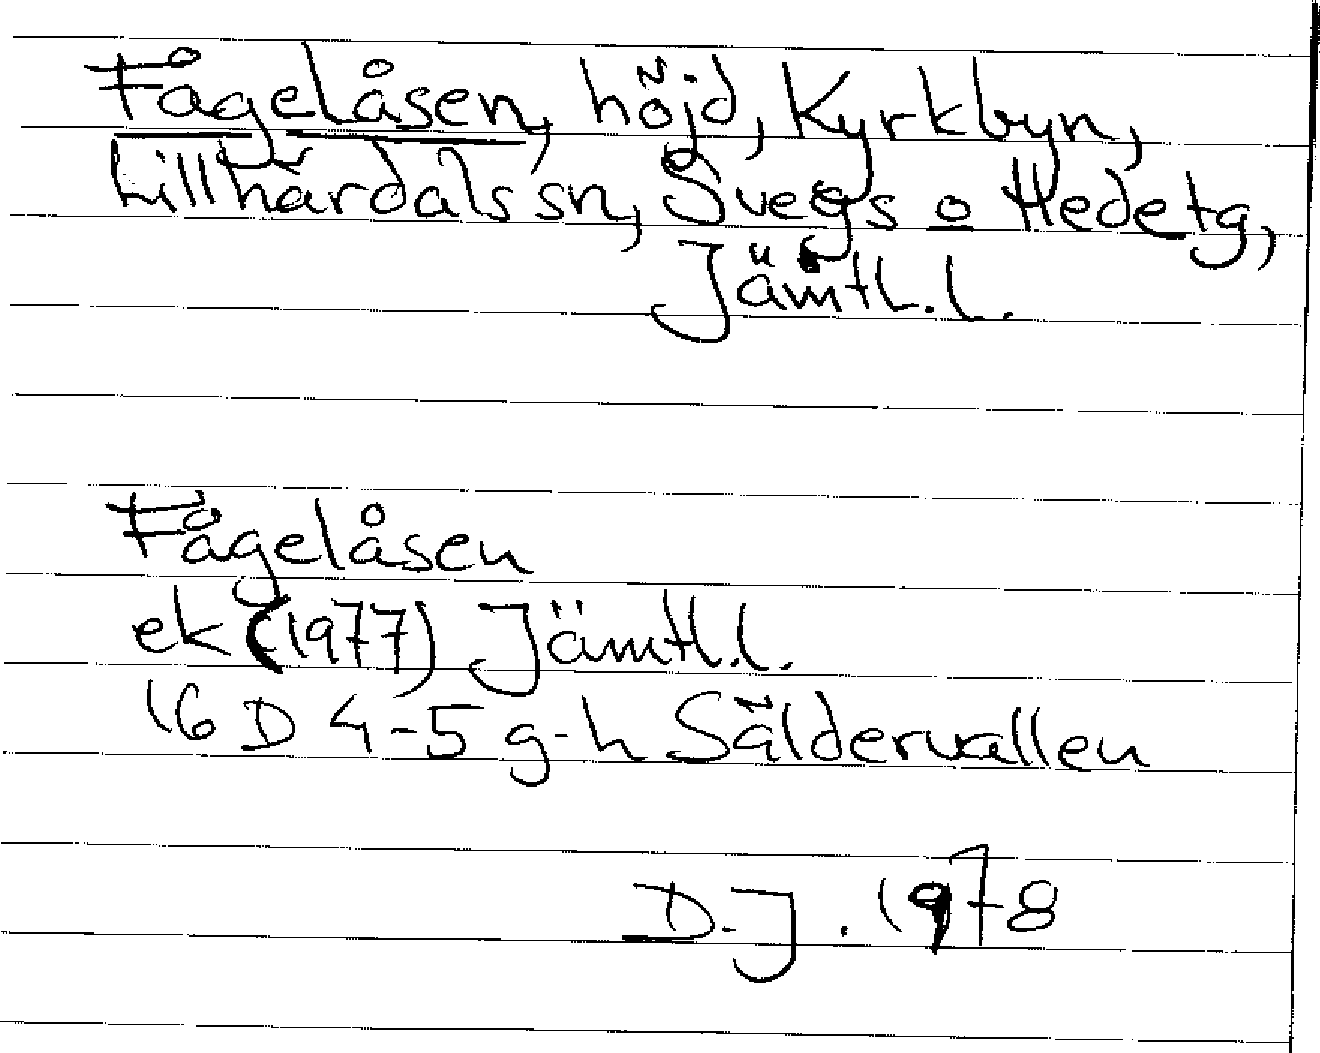 Fågelåsen, höjd, Kyrkbyn,
Lillhärdals sn, Svegs o Hedetg,
Jämtl.l.
Fågelåsen
ek (1977) Jämtl.l.
16 D 4-5 g-h Säldervallen
D.J. 1978